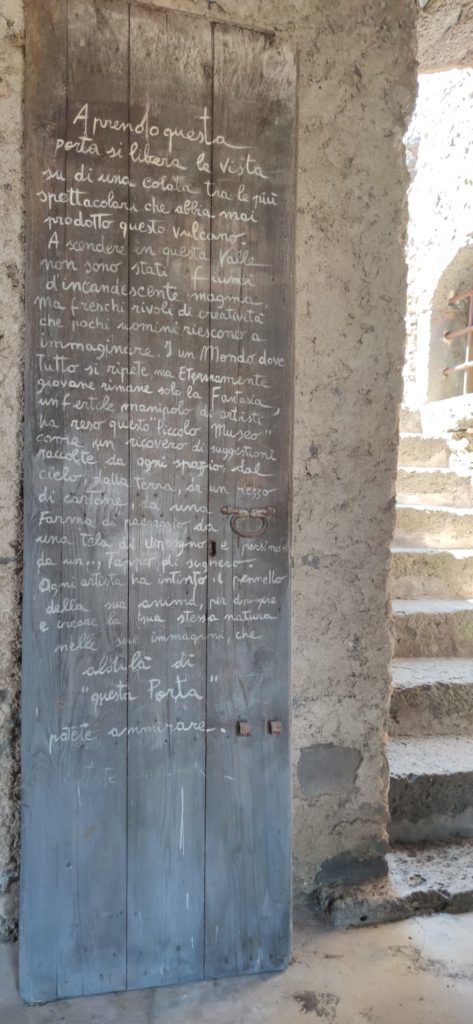 Aprendo questa
porta si libera la vista
su di una colata tra le più
spettacolari che abbia mai
prodotto questo vulcano.
A scendere in questa Valle
non sono stati fiumi
d'incandescente magma,
ma freschi rivoli di creatività
che pochi uomini riescono a
immaginare. In un Mondo dove
tutto si ripete, ma Eternamente
giovane rimane solo la Fantasia,
un fertile manipolo di artisti
ha reso questo "Piccolo Museo"
come un ricovero di suggestioni
raccolte da ogni spazio: dal
cielo, dalla terra, da un pezzo
di cartone, da una
Forma di paesaggio da
una tela di un ragno e persino
da un... Tappo di sughero.
Ogni artista ha intinto il pennello
della sua anima, per dipingere
e creare la sua stessa natura
nelle sue immagini, che
al di là di
"questa Porta"
potete ammirare.